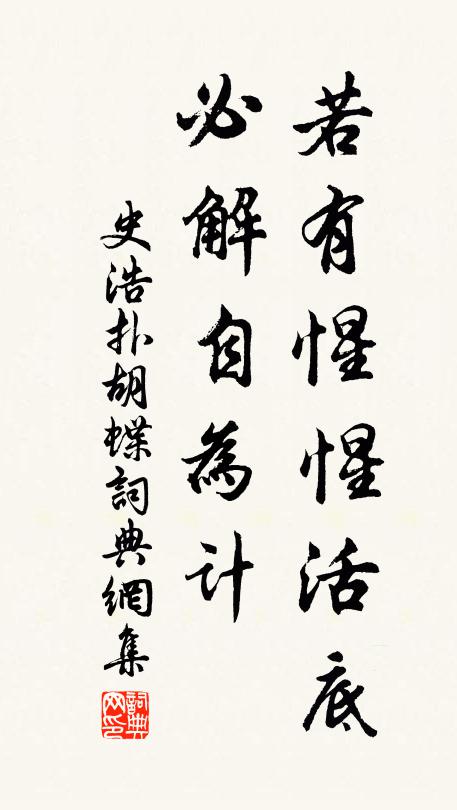 若有惺惺活底
必解自為計
史浩扑胡蝶詞典網集
詞典网印